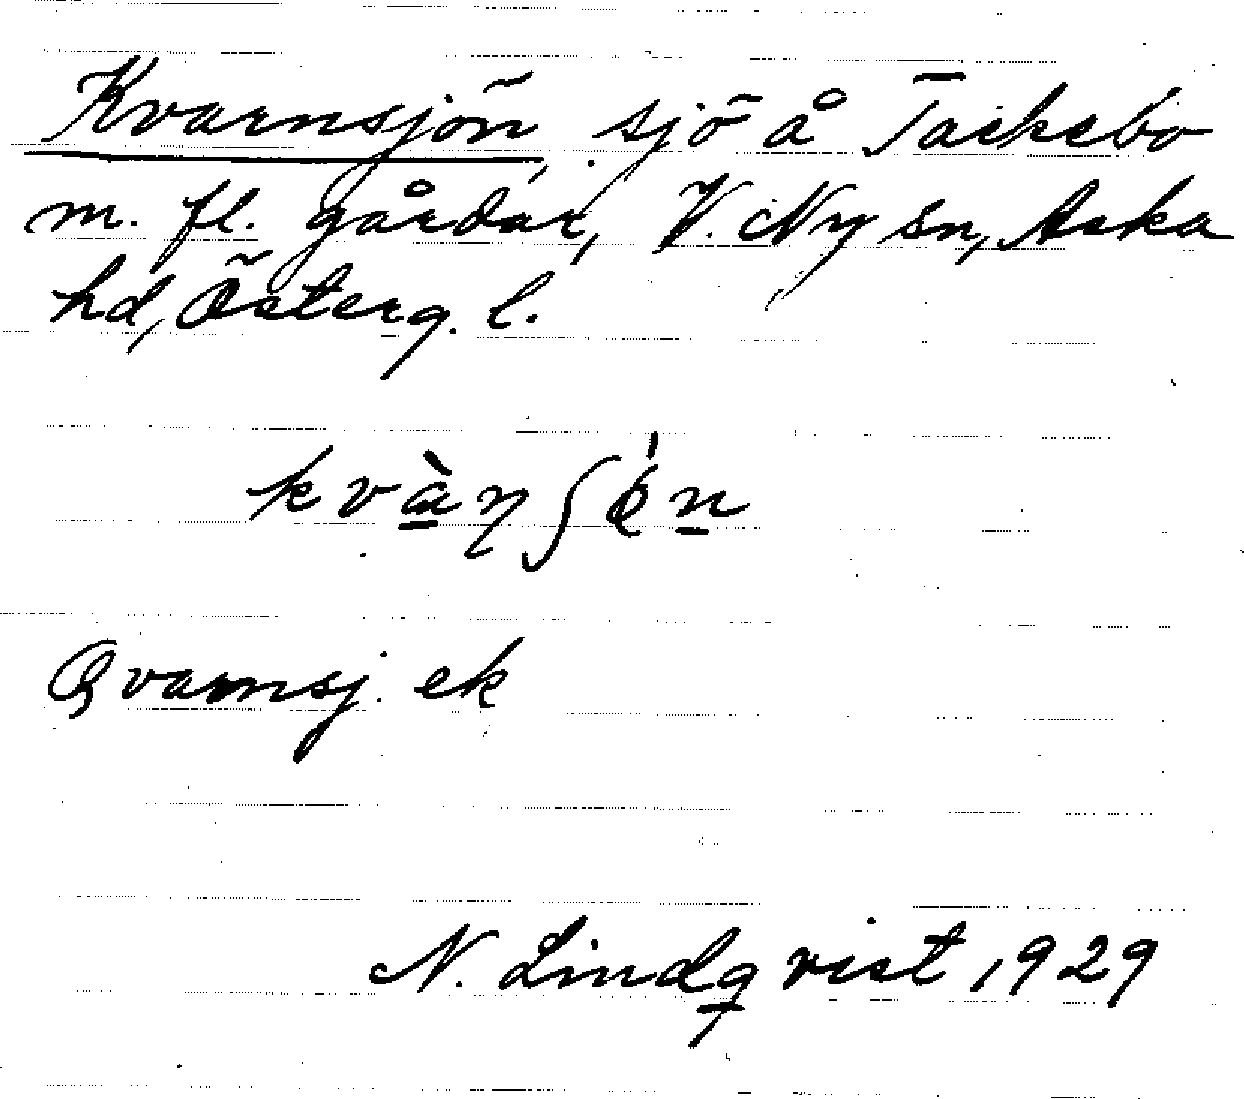 Kvarnsjön, sjö å Tackebo
m. fl. gårdar, V. Ny sn, Aska
hd, Österg. l.
Qvarnsj. ek
N. Lindqvist 1929